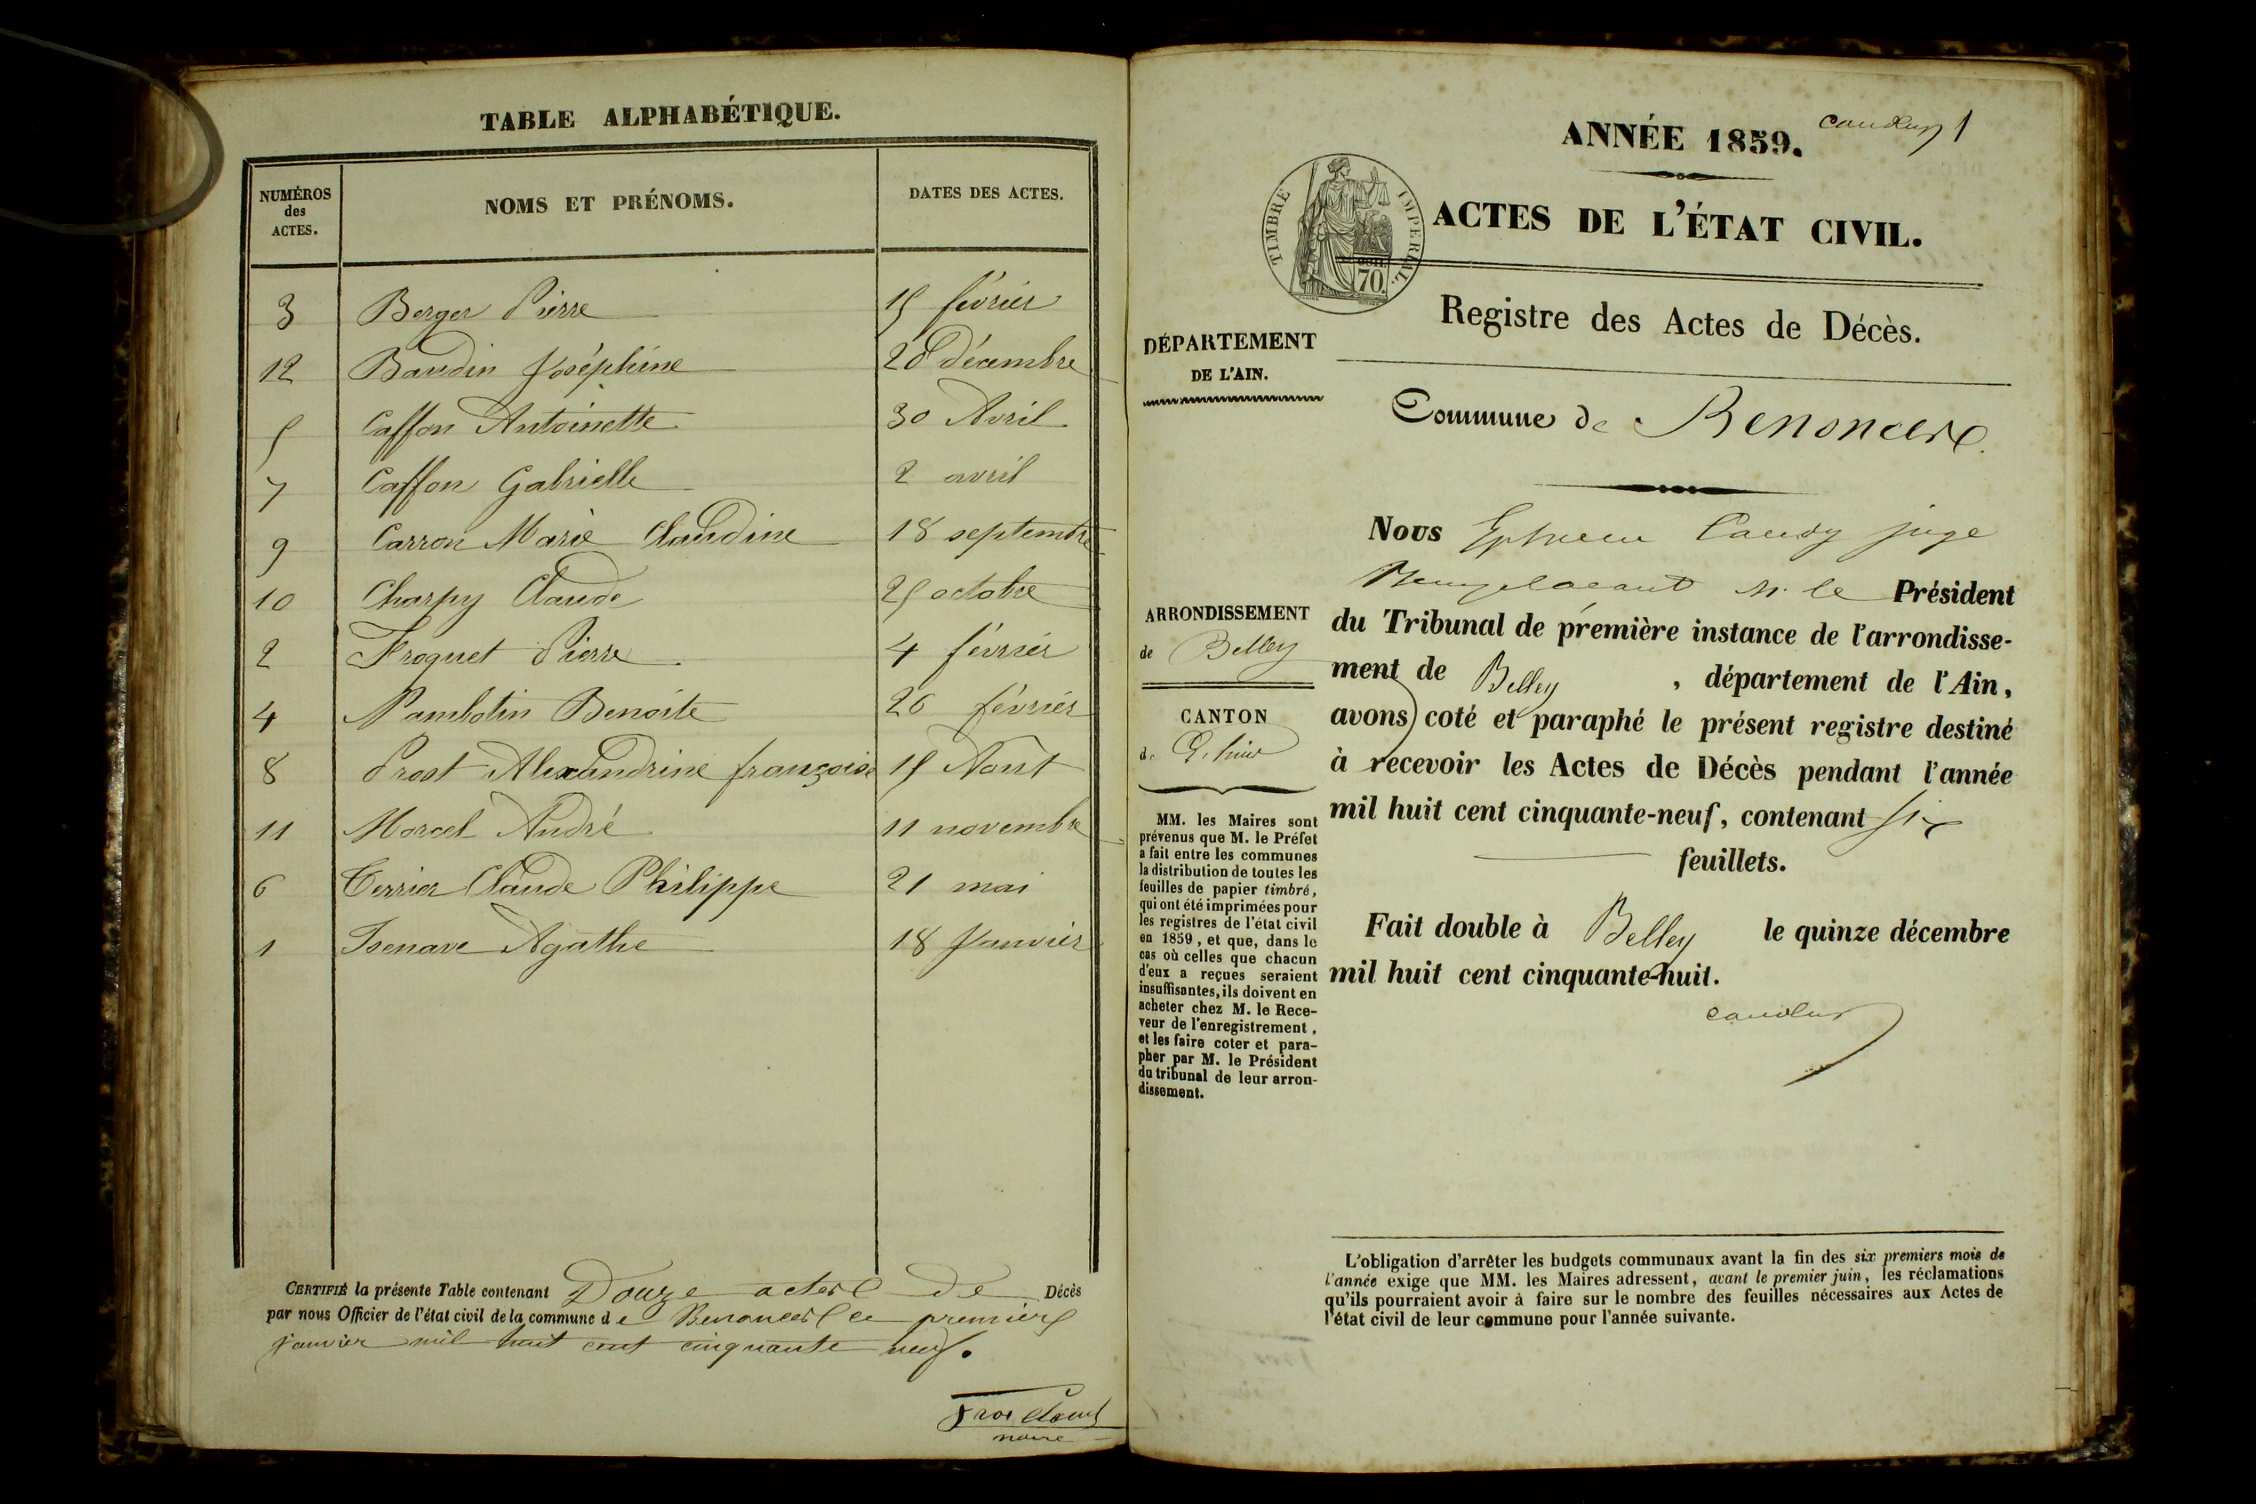 TABLE ALPHABÉTIQUE.
NUMÉROS
des
ACTES.
NOMS ET PRÉNOMS.
DATES DES ACTES.
3 Berger Pierre 15 février
12 Baudin Joséphine 28 décembre
5 Caffon Antoinette 30 Avril
7 Caffon Gabrielle 2 avril
9 Carron Marie Claudine 18 septembre
10 Charpy Claude 25 octobre
2 Froquet Pierre 4 février
4 Pambotin Benoite 26 février
8 Prost Alexandrine françoise 15 Aout
11 Morcel André 11 novembre
6 Terrier Claude Philippe 21 mai
1 Isenave Agathe 18 Janvier
CERTIFIÉ la présente Table contenant Douze actes de Décès
par nous Officier de l'état civil de la commune de Benonces le premier
janvier mil huit cent cinquante neuf.
maire
ANNÉE 1859.
1
ACTES DE L'ÉTAT CIVIL.
TIMBRE IMPÉRIAL
70.
Registre des Actes de Décès.
DÉPARTEMENT
DE L'AIN.
Commune de Benonces
Nous juge
Remplacant M. le Président
du Tribunal de première instance de l'arrondisse-
ment de Belley, département de l'Ain,
avons coté et paraphé le présent registre destiné
à recevoir les Actes de Décès pendant l'année
mil huit cent cinquante-neuf, contenant six
feuillets.
Fait double à Belley le quinze décembre
mil huit cent cinquante-huit.
ARRONDISSEMENT
de Belley
CANTON
de
MM. les Maires sont
prévenus que M. le Préfet
a fait entre les communes
la distribution de toutes les
feuilles de papier timbré,
qui ont été imprimées pour
les registres de l'état civil
en 1859, et que, dans le
cas où celles que chacun
d'eux a reçues seraient
insuffisantes, ils doivent en
acheter chez M. le Rece-
veur de l'enregistrement,
et les faire coter et para-
pher par M. le Président
du tribunal de leur arron-
dissement.
L'obligation d'arrêter les budgets communaux avant la fin des six premiers mois de
l'année exige que MM. les Maires adressent, avant le premier juin, les réclamations
qu'ils pourraient avoir à faire sur le nombre des feuilles nécessaires aux Actes de
l'état civil de leur commune pour l'année suivante.